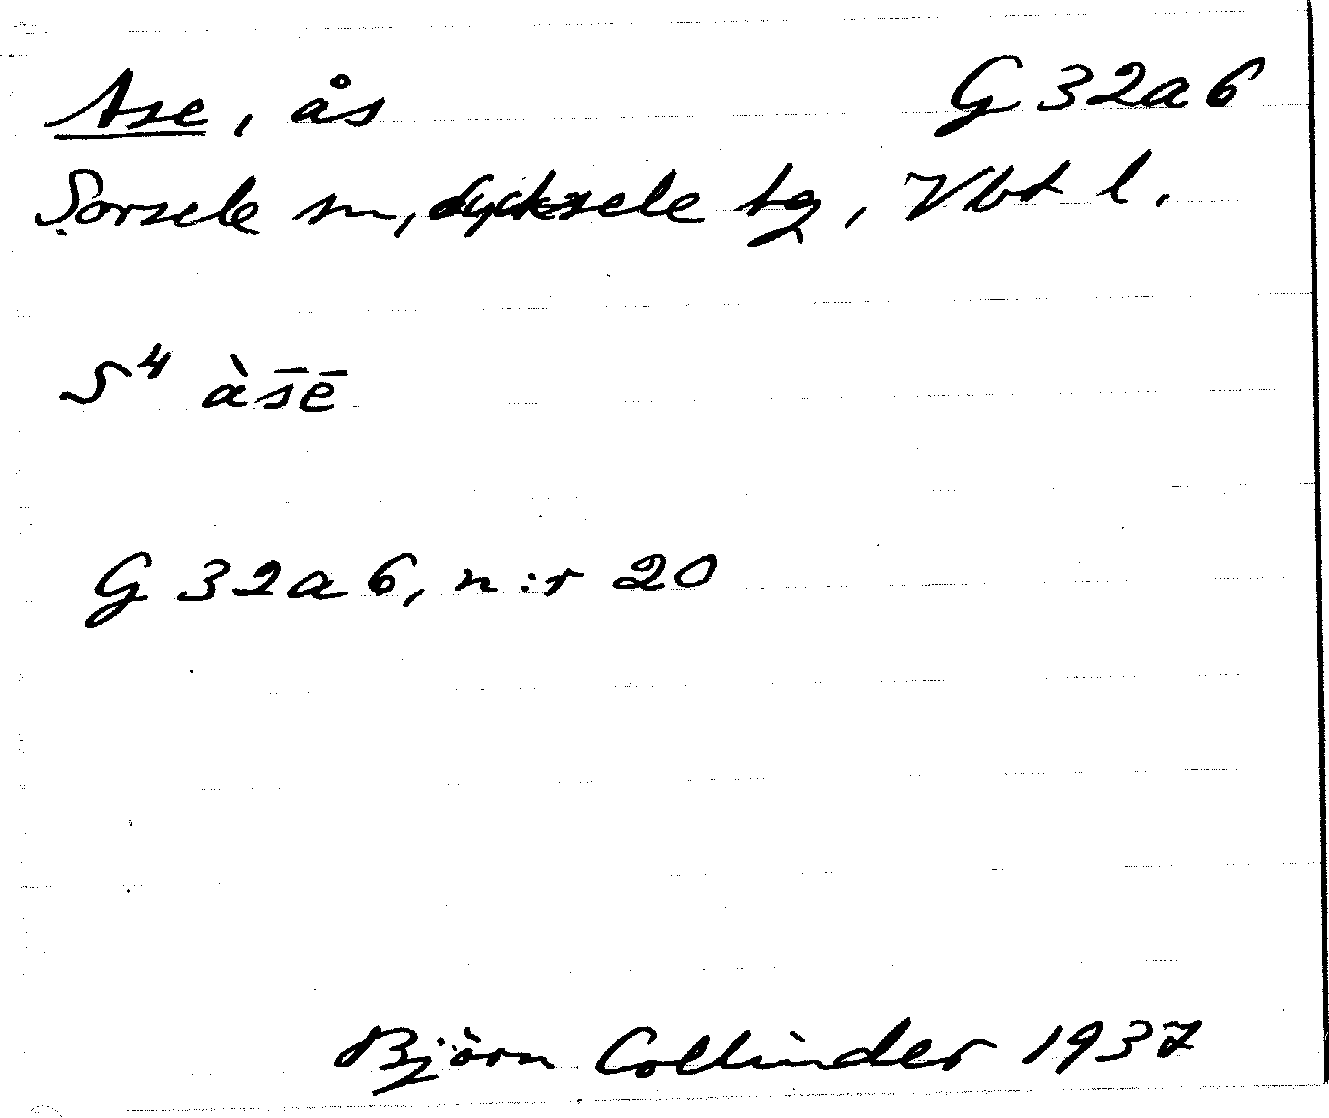 Ase, ås G 32a6
Sorsele sn, Lycksele tg, Vbt l.
S⁴ às̄ē
G 32a6, n:r 20
Björn Collinder 1937